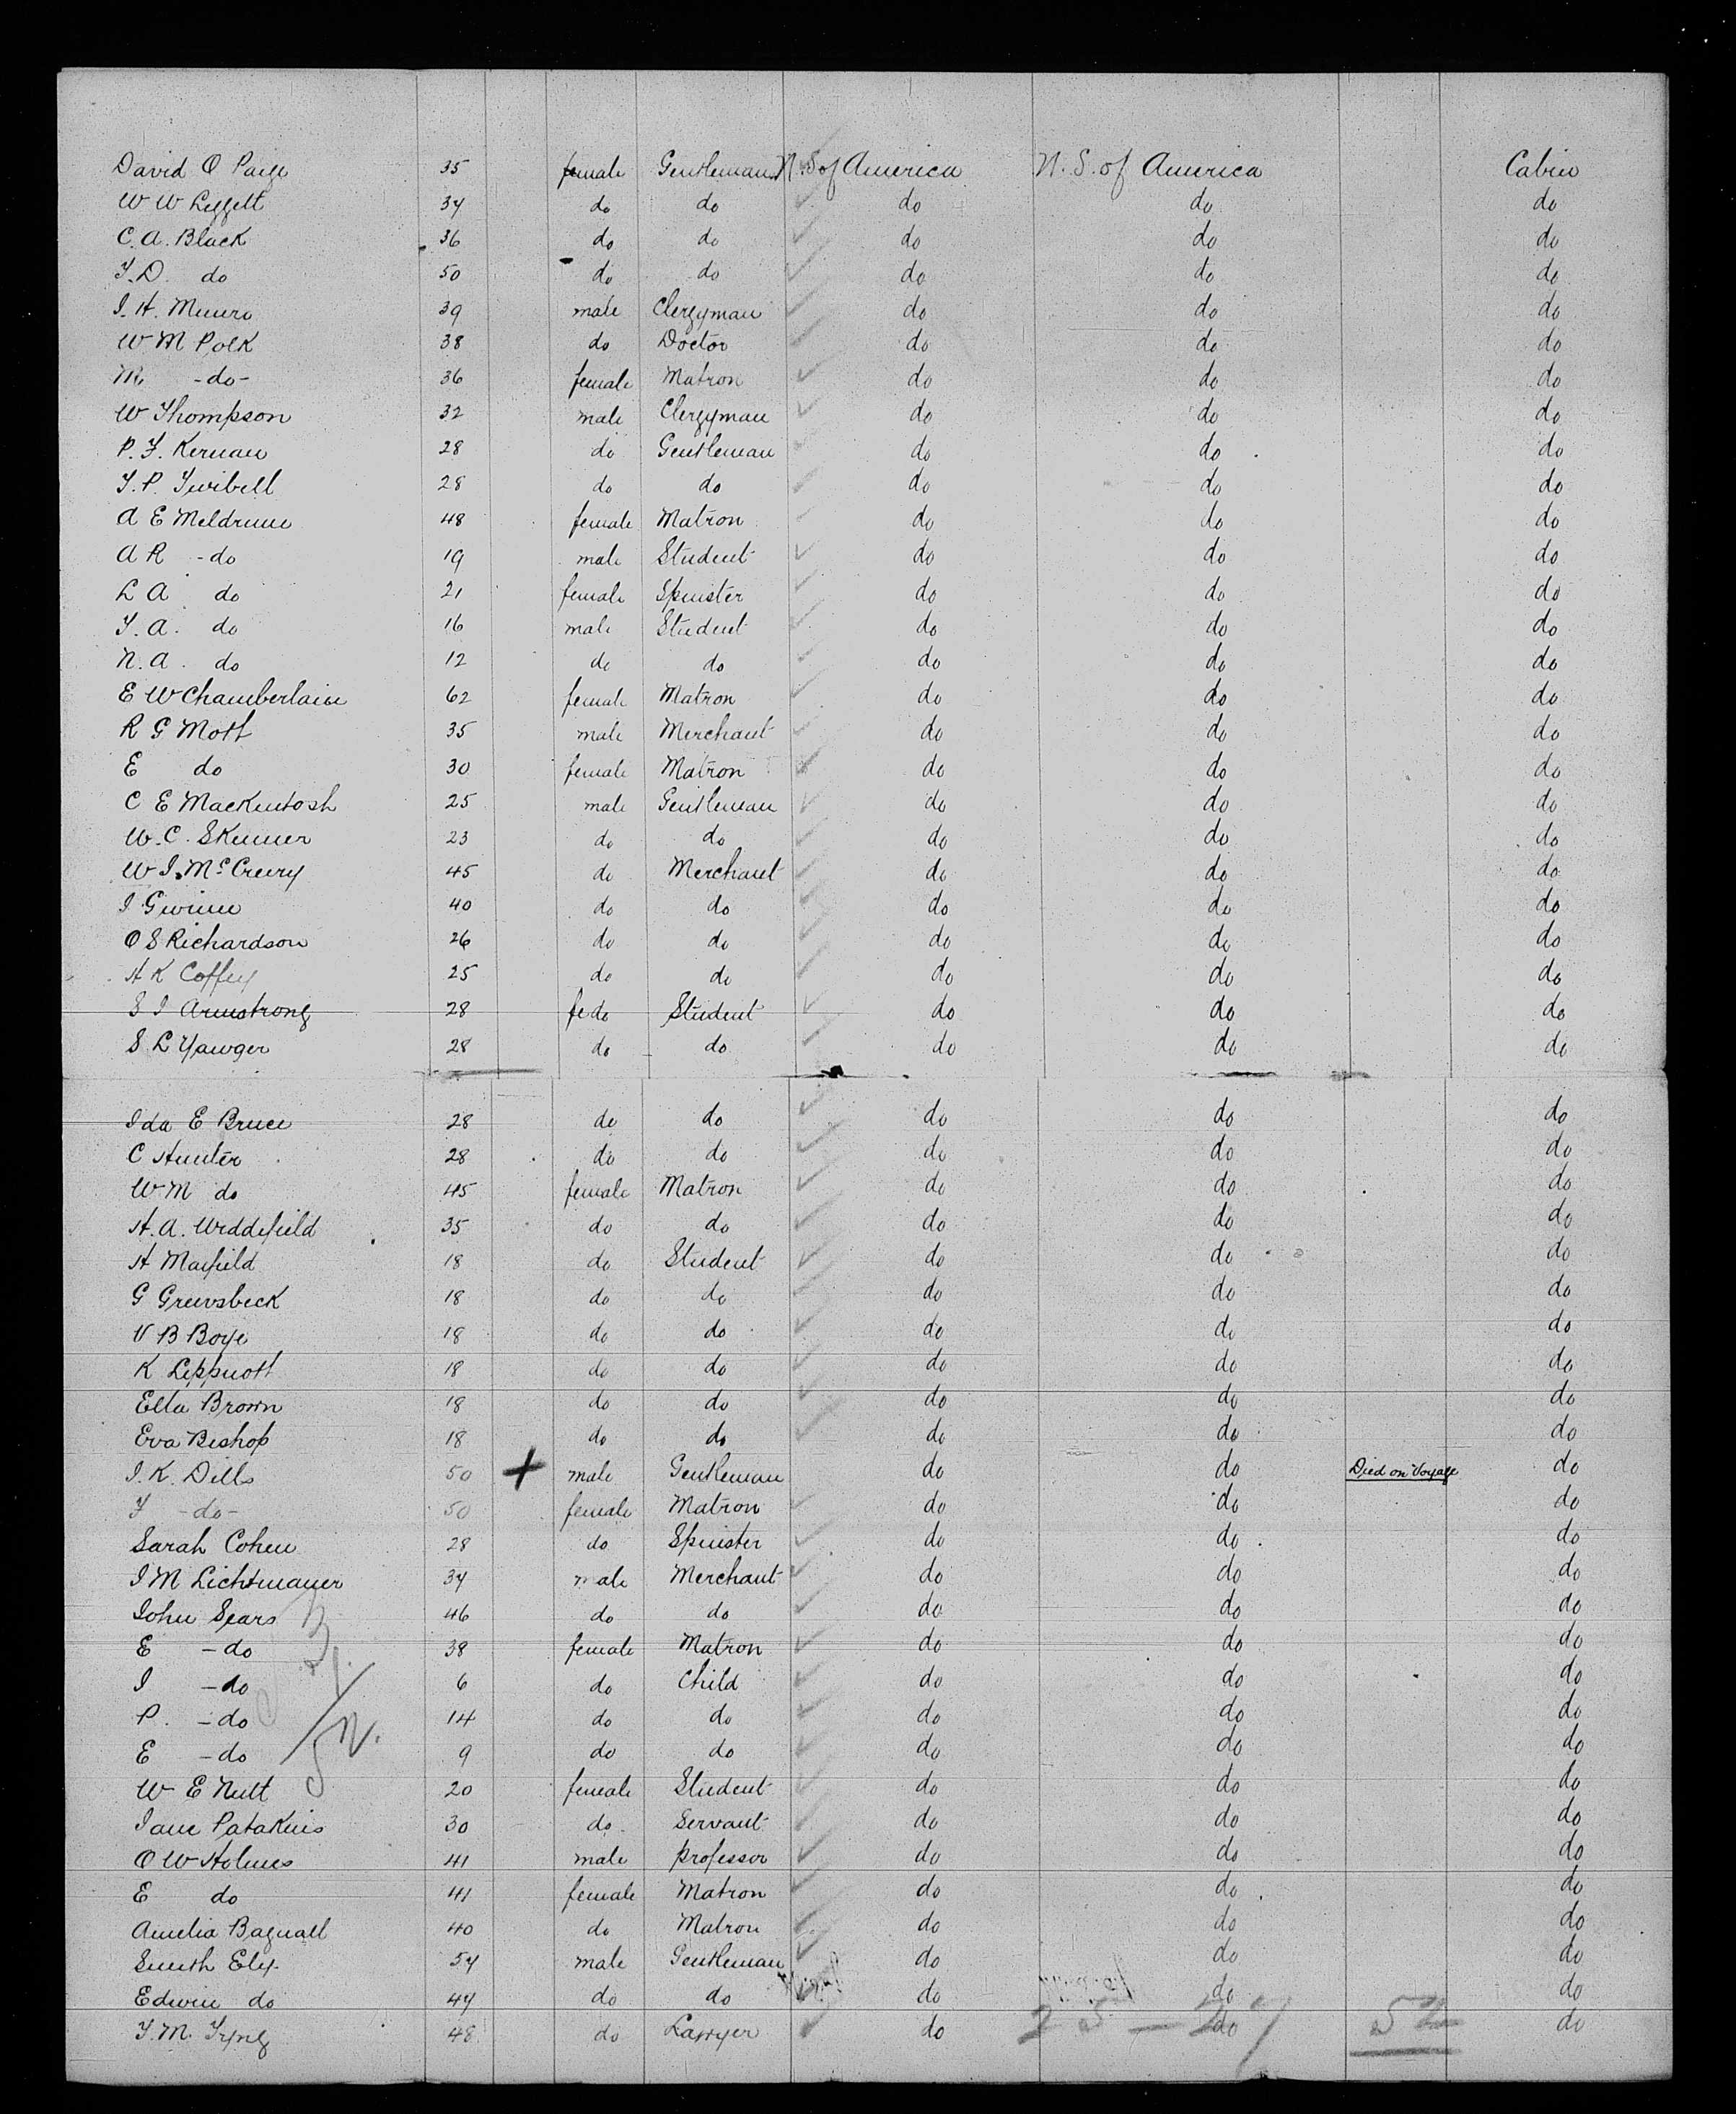 David O Paige 35 female Gentleman U.S of America U.S. of America Cabin
W W Leggett 34 do do do do do
C. A. Black 36 do do do do do
J. D. do 50 do do do do do
I. H. Munro 39 male Clergyman do do do
W M Polk 38 do Doctor do do do
M -do- 36 female Matron do do do
W Thompson 32 male Clergyman do do do
P. F. Kernan 28 do Gentleman do do do
T. P. Twibell 28 do do do do do
A E Meldrum 48 female Matron do do do
A R -do 19 male Student do do do
L A do 21 female Spinster do do do
T. A. do 16 male Student do do do
N. A. do 12 do do do do do
E W Chamberlain 62 female Matron do do do
R G Mott 35 male Merchant do do do
E do 30 female Matron do do do
C E Mackintosh 25 male Gentleman do do do
W. C. Skinner 23 do do do do do
W I. McCreery 45 do Merchant do do do
I Gwinn 40 do do do do do
O S Richardson 26 do do do do do
H K Coffey 25 do do do do do
S I Armstrong 28 fe do Student do do do
S L Yawger 28 do do do do do
Ida E Bruce 28 do do do do do
C Hunter 28 do do do do do
W M do 45 female Matron do do do
H. A. Widdefield 35 do do do do do
H Maxfield 18 do Student do do do
G Greensbeck 18 do do do do do
V B Boye 18 do do do do do
K Lippnott 18 do do do do do
Ella Brown 18 do do do do do
Eva Bishop 18 do do do do do
I. K. Dills 50 + male Gentleman do do Died on Voyage do
F -do- 50 female Matron do do do
Sarah Cohen 28 do Spinster do do do
I M Lichtmayer 34 male Merchant do do do
John Sears 46 do do do do do
E -do 38 female Matron do do do
I -do 6 do Child do do do
P. -do 14 do do do do do
E -do 9 do do do do do
W E Nutt 20 female Student do do do
Jane Patakins 30 do Servant do do do
O W Holmes 41 male professor do do do
E do 41 female Matron do do do
Amelia Bagnall 40 do Matron do do do
Smith Ely 54 male Gentleman do do do
Edwin do 44 do do do do do
T. M. Tyng 48 do Lawyer do do do
25 - 27 52